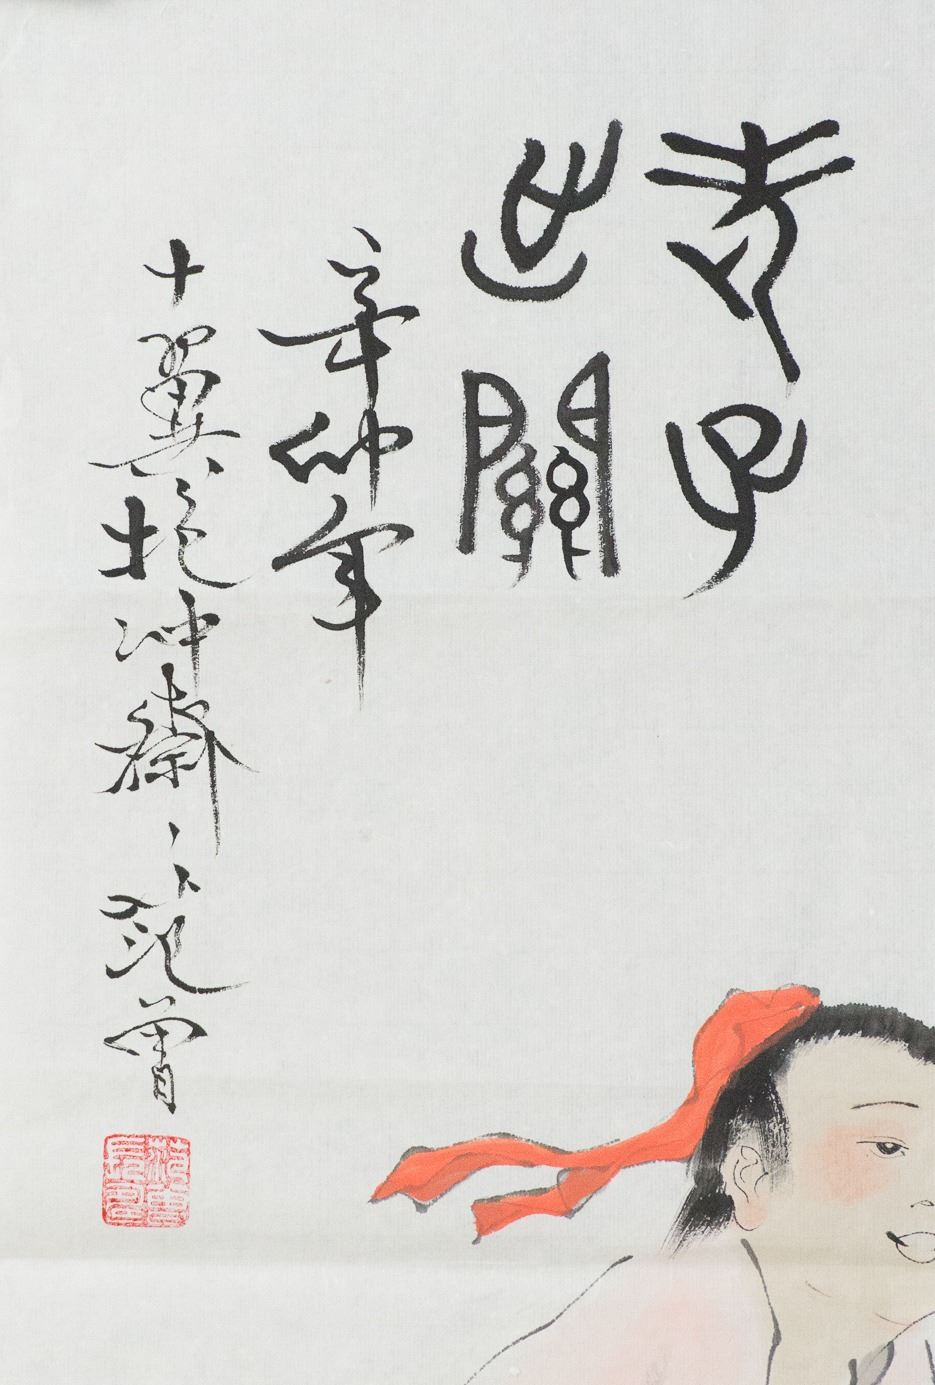 老子
出關
辛卯年
十翼抱冲齋范曾